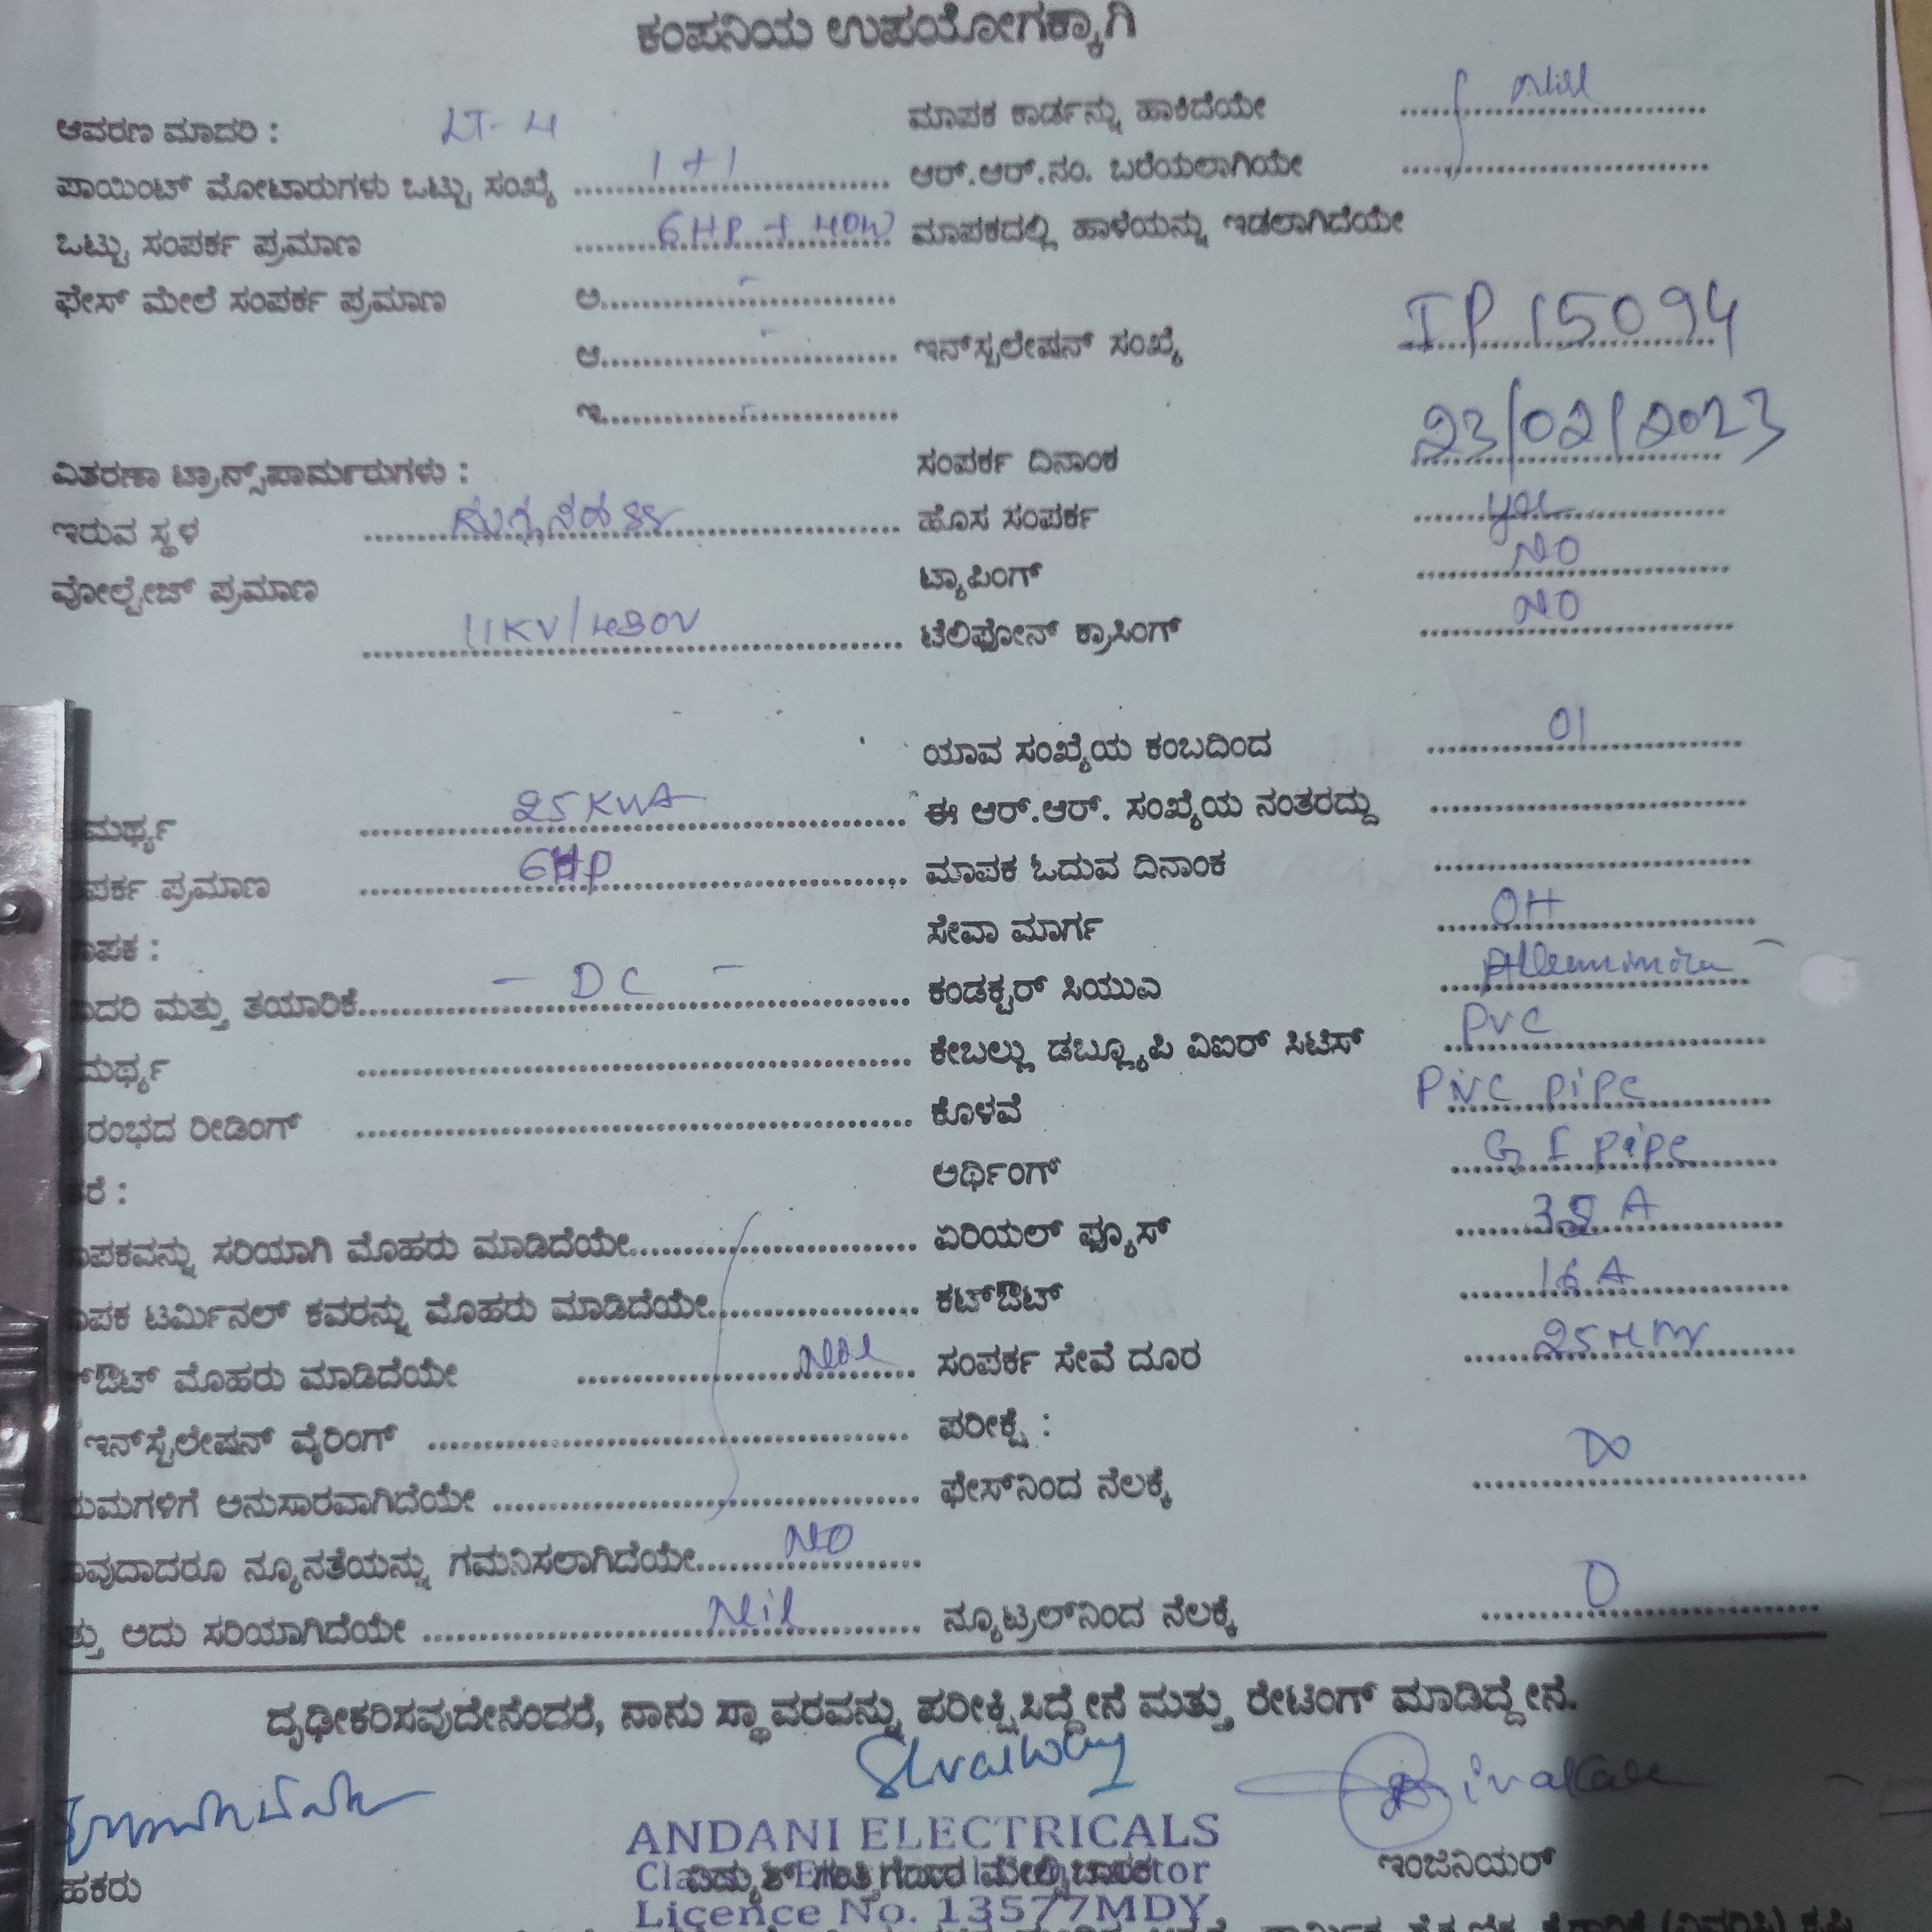 ಕಂಪನಿಯ ಉಪಯೋಗಕ್ಕಾಗಿ
ಆವರಣ ಮಾದರಿ : LT-4
ಮಾಪಕ ಕಾರ್ಡನ್ನು ಹಾಕಿದೆಯೇ
ಪಾಯಿಂಟ್ ಮೋಟಾರುಗಳು ಒಟ್ಟು ಸಂಖ್ಯೆ 1+1
ಆರ್.ಆರ್.ನಂ. ಬರೆಯಲಾಗಿಯೇ
ಒಟ್ಟು ಸಂಪರ್ಕ ಪ್ರಮಾಣ 6HP + 40W
ಮಾಪಕದಲ್ಲಿ ಹಾಳೆಯನ್ನು ಇಡಲಾಗಿದೆಯೇ
ಫೇಸ್ ಮೇಲೆ ಸಂಪರ್ಕ ಪ್ರಮಾಣ ಅ. -
ಆ. -
ಇನ್‌ಸ್ಟಲೇಷನ್ ಸಂಖ್ಯೆ IP 15094
ಇ. -
ವಿತರಣಾ ಟ್ರಾನ್ಸ್‌ಪಾರ್ಮರುಗಳು :
ಸಂಪರ್ಕ ದಿನಾಂಕ 23/02/2023
ಇರುವ ಸ್ಥಳ
ಹೊಸ ಸಂಪರ್ಕ yes
ವೋಲ್ಟೇಜ್ ಪ್ರಮಾಣ 11KV/430V
ಟ್ಯಾಪಿಂಗ್ NO
ಟೆಲಿಫೋನ್ ಕ್ರಾಸಿಂಗ್ NO
ಯಾವ ಸಂಖ್ಯೆಯ ಕಂಬದಿಂದ 01
ಮರ್ಥ್ಯ 25 KVA
ಈ ಆರ್.ಆರ್. ಸಂಖ್ಯೆಯ ನಂತರದ್ದು
ಪರ್ಕ ಪ್ರಮಾಣ 6HP
ಮಾಪಕ ಓದುವ ದಿನಾಂಕ
ಪಕ :
ಸೇವಾ ಮಾರ್ಗ OH
ದರಿ ಮತ್ತು ತಯಾರಿಕೆ - DC -
ಕಂಡಕ್ಟರ್ ಸಿಯುಎ
ಮರ್ಥ್ಯ
ಕೇಬಲ್ಲು ಡಬ್ಲ್ಯೂಪಿ ವಿಐರ್ ಸಿಟಿಸ್ PVC
ರಂಭದ ರೀಡಿಂಗ್
ಕೊಳವೆ PVC pipe
ರೆ :
ಅರ್ಥಿಂಗ್ G I pipe
ಪಕವನ್ನು ಸರಿಯಾಗಿ ಮೊಹರು ಮಾಡಿದೆಯೇ
ಏರಿಯಲ್ ಫ್ಯೂಸ್
ಪಕ ಟರ್ಮಿನಲ್ ಕವರನ್ನು ಮೊಹರು ಮಾಡಿದೆಯೇ
ಕಟ್‌ಔಟ್ 16 A
ಔಟ್ ಮೊಹರು ಮಾಡಿದೆಯೇ
ಸಂಪರ್ಕ ಸೇವೆ ದೂರ
ಇನ್‌ಸ್ಟೆಲೇಷನ್ ವೈರಿಂಗ್
ಪರೀಕ್ಷೆ :
ಯಮಗಳಿಗೆ ಅನುಸಾರವಾಗಿದೆಯೇ
ಫೇಸ್‌ನಿಂದ ನೆಲಕ್ಕೆ ∞
ವುದಾದರೂ ನ್ಯೂನತೆಯನ್ನು ಗಮನಿಸಲಾಗಿದೆಯೇ NO
ತ್ತು ಅದು ಸರಿಯಾಗಿದೆಯೇ Nil
ನ್ಯೂಟ್ರಲ್‌ನಿಂದ ನೆಲಕ್ಕೆ 0
ದೃಢೀಕರಿಸವುದೇನೆಂದರೆ, ನಾನು ಸ್ಥಾವರವನ್ನು ಪರೀಕ್ಷಿಸಿದ್ದೇನೆ ಮತ್ತು ರೇಟಿಂಗ್ ಮಾಡಿದ್ದೇನೆ.
ANDANI ELECTRICALS
ಹಕರು
ಇಂಜಿನಿಯರ್
Licence No. 13577MDY